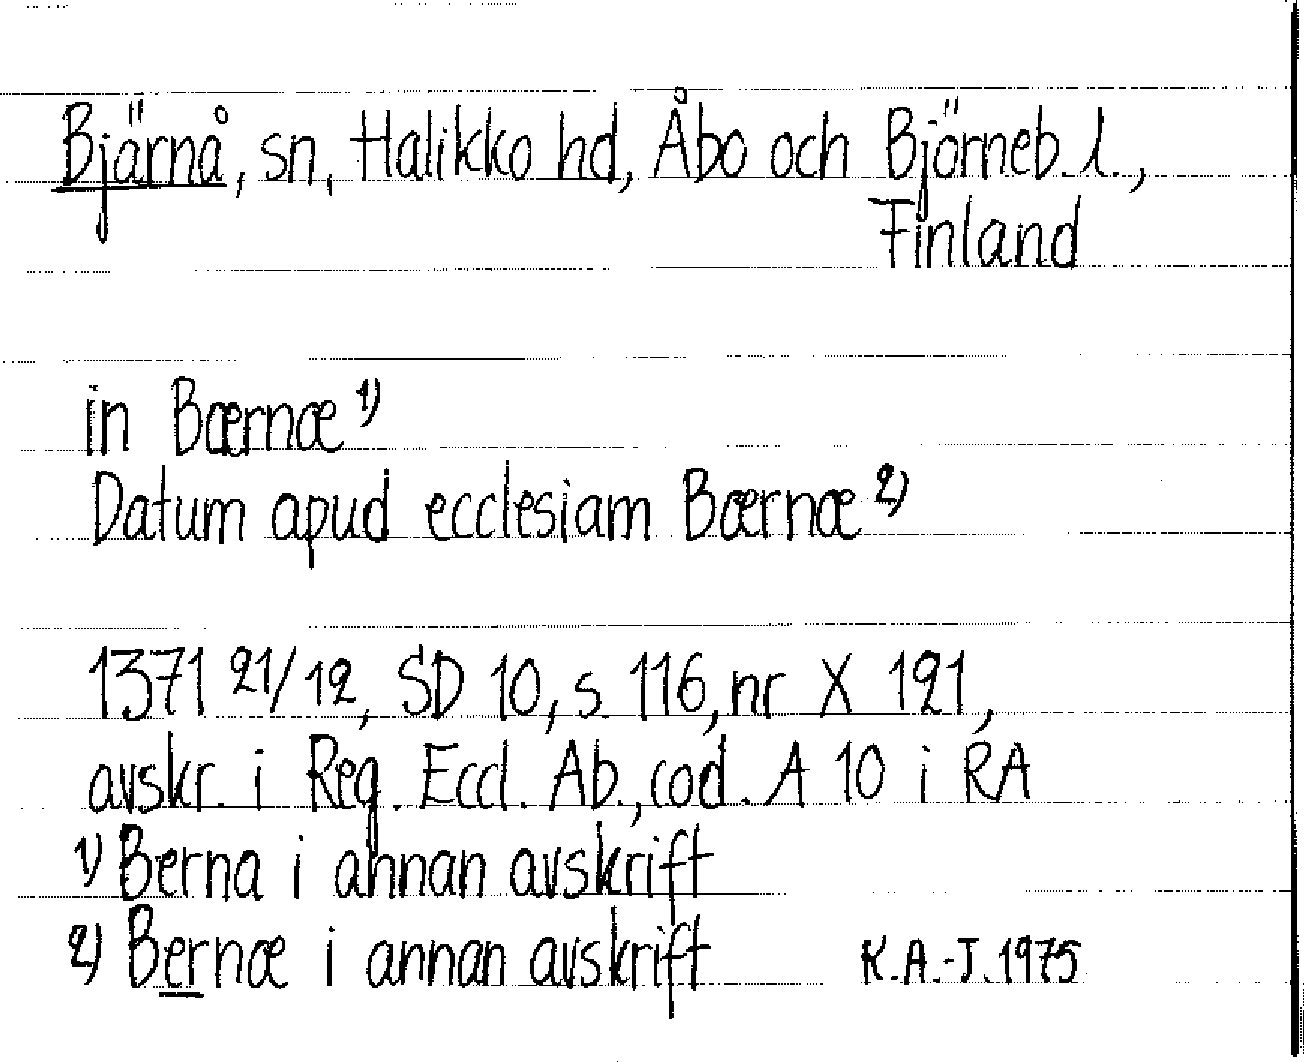 Bjärnå, sn, Halikko hd, Åbo och Björneb. l.,
Finland
in Bærnæ 1)
Datum apud ecclesiam Bærnæ 2)
1371 21/12, SD 10, s. 116, nr X 121,
avskr. i Reg. Eccl. Ab., cod. A 10 i RA
1) Berna i annan avskrift
2) Bernæ i annan avskrift K.A.-J. 1975